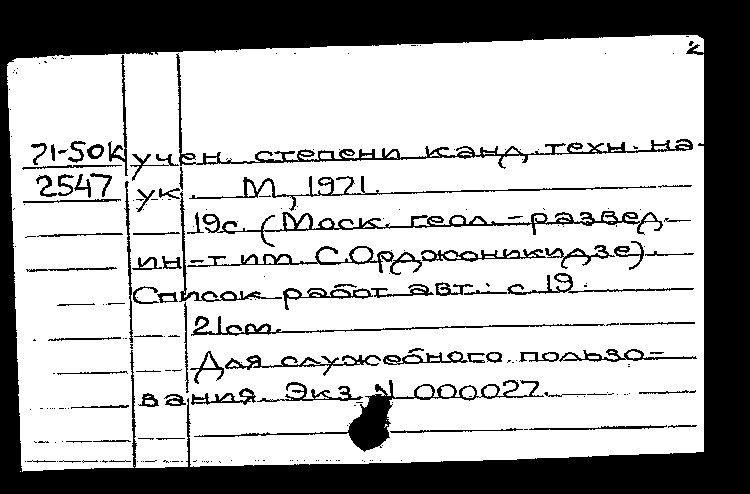 2
71-50К учен. степени канд. техн. на-
2547 ук. М, 1971.
19с. (Моск. геол.-развед.
ин-т им. С.Орджоникидзе).
Список работ авт.: с.19.
21см.
Для служебного пользо-
вания. Экз. N 000027.